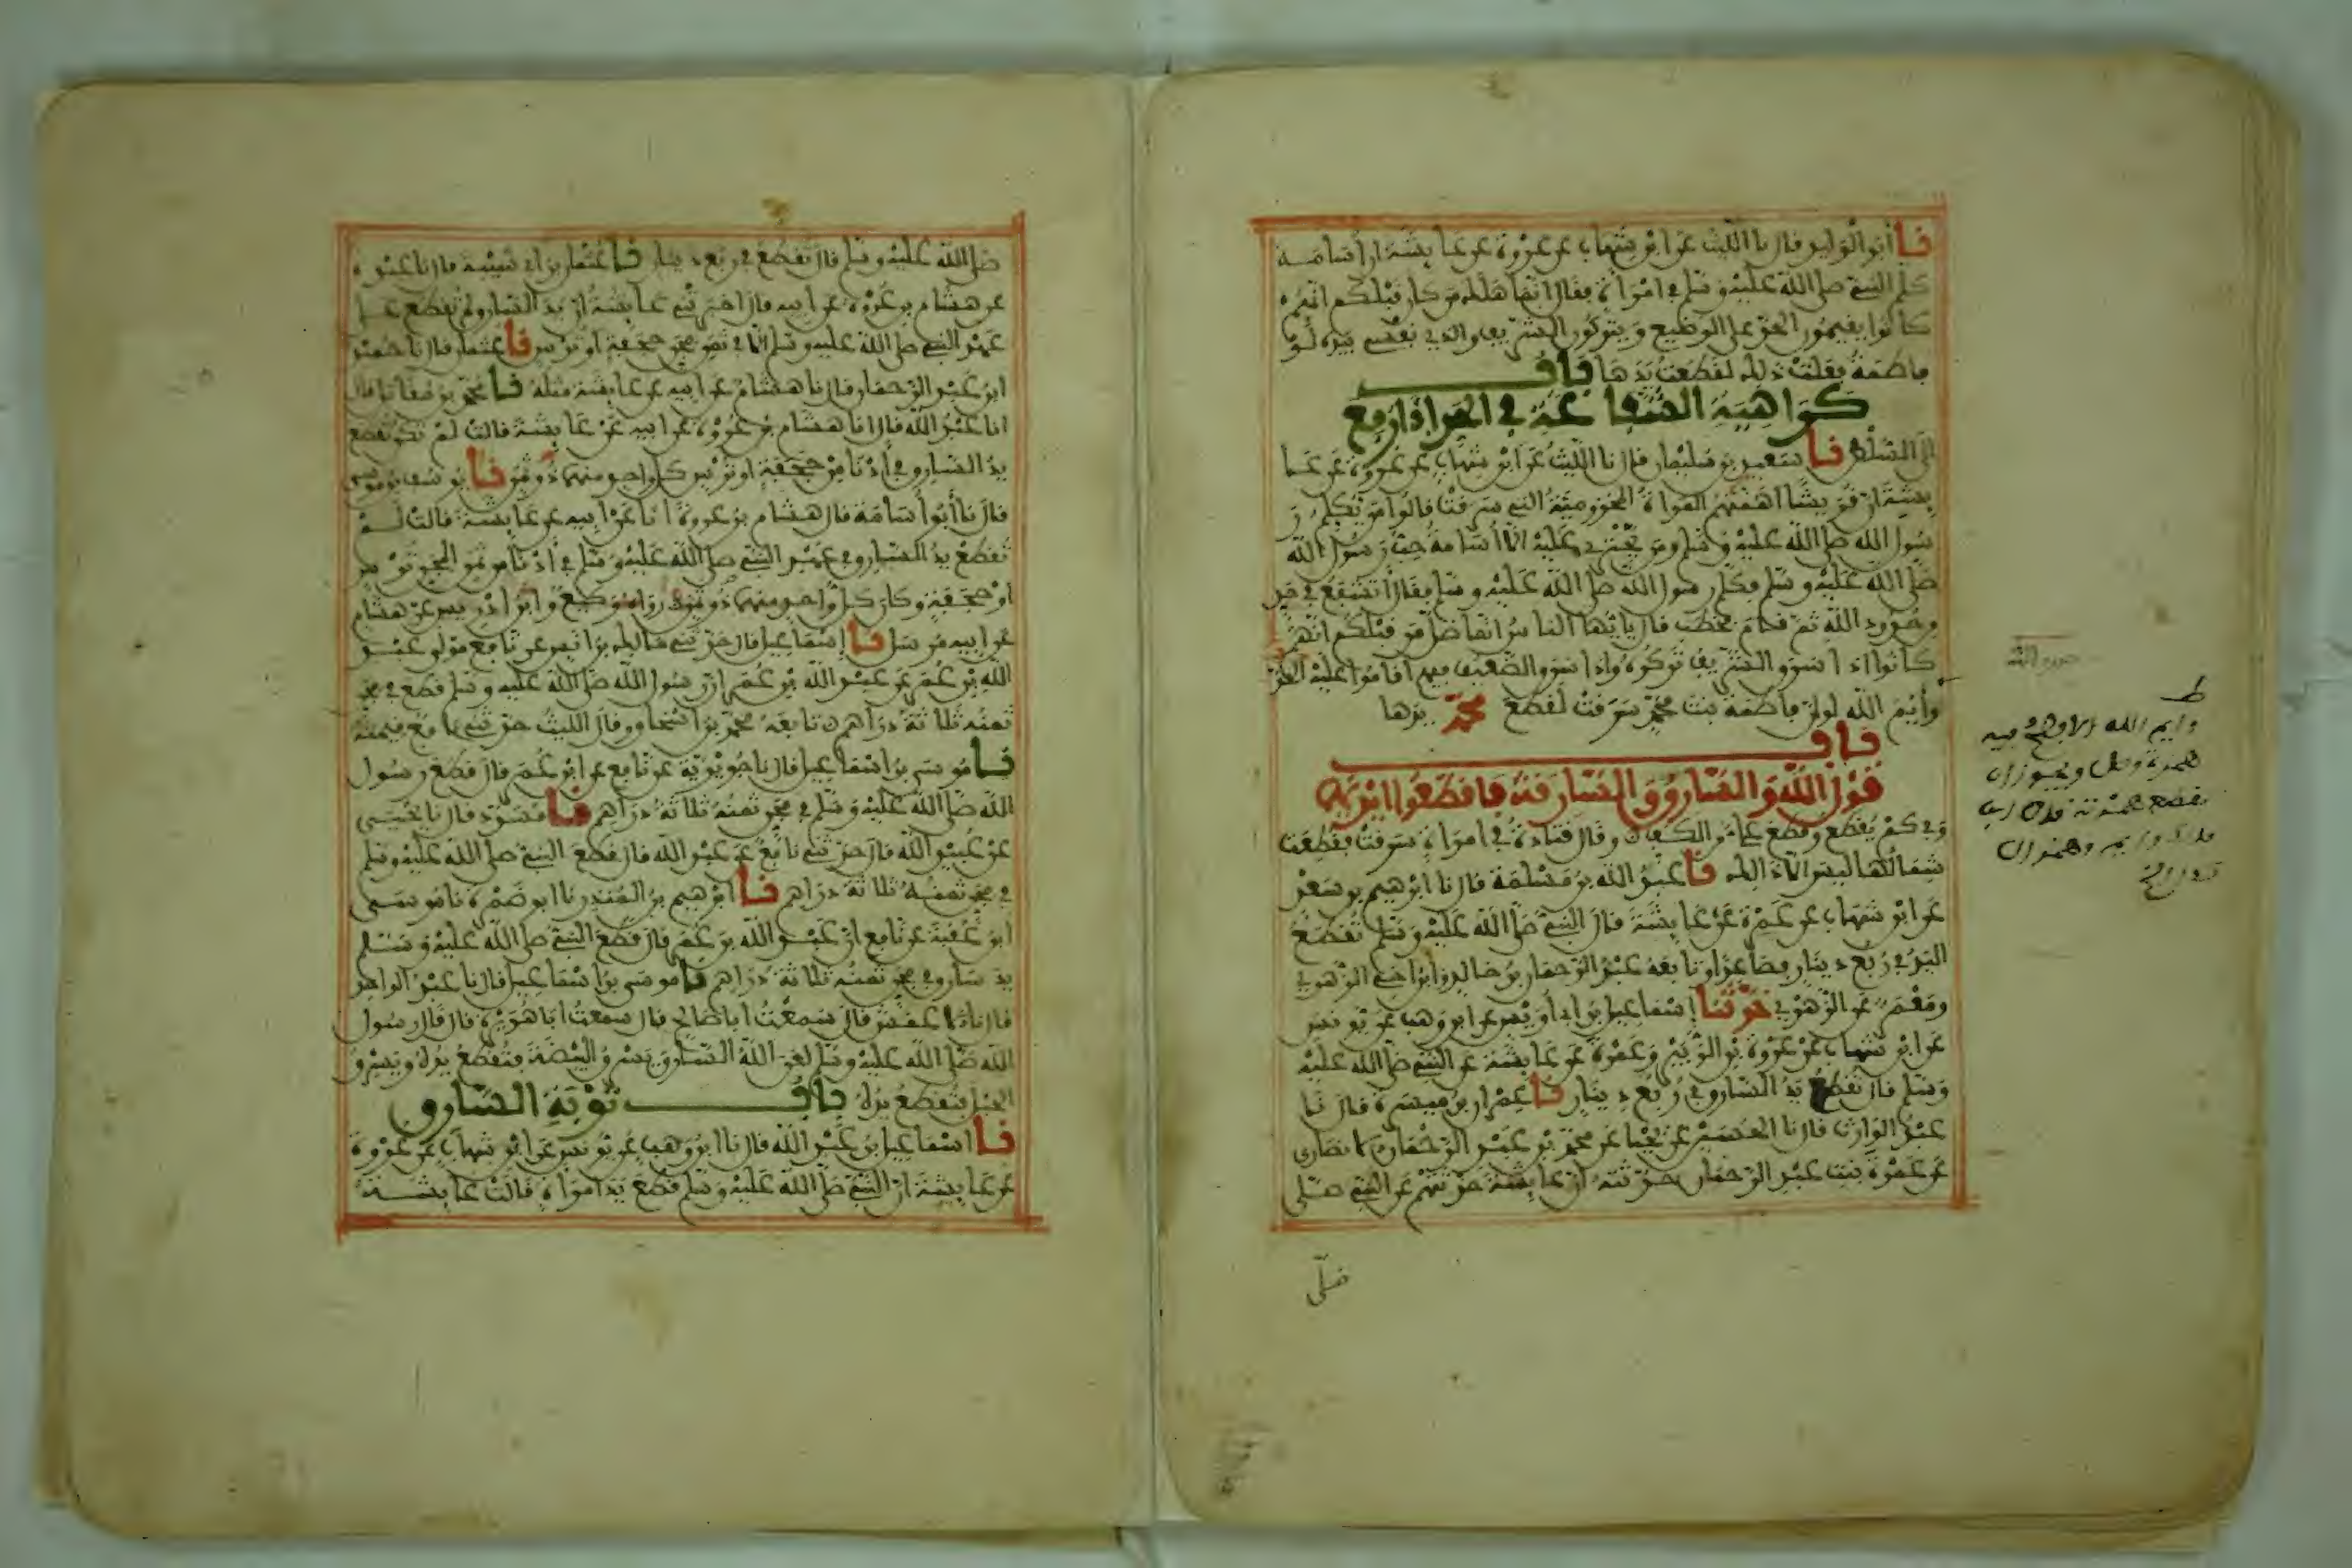 نا أبو الوليد قال نا الليث عن ابن شهاب عن عروة عن عايشة أن أسامة
كلم النبي صلى الله عليه وسلم في امرأة فقال إنما هلك من كان قبلكم أنهم
كانوا يقيمون الحد على الوضيع ويتركون الشريف والذي نفسي بيده لو
فاطمة فعلت ذلك لقطعت يدها باب
كراهية الشفاعة في الحد إذا رفع
إلى السلطن نا سعيد بن سليمان قال نا الليث عن ابن شهاب عن عروة عن عا
يشة أن قريشا أهمتهم المرأة المخزومية التي سرقت فالوا من يكلم ر
سول الله صلى الله عليه وسلم ومن يجتري عليه إلا أسامة حب رسول الله
صلى الله عليه وسلم فكلم رسول الله صلى الله عليه وسلم فقال أتشفع في حد
من حدود الله ثم قام فخطب قال يايها الناس إنما ضل من قبلكم أنهم
كانوا إذا سرق الشريف تركوه وإذا سرق الضعيف فيهم أقاموا عليه الحد
وأيم الله لو أن فاطمة بنت محمد سرقت لقطع محمد يدها
باب
قول الله والسارق والسارقة فاقطعوا أيديهما
وفي كم يقطع وقطع علي من الكف وقال قتادة في امرأة سرقت فقطعت
شمالها ليس إلا ذلك نا عبد الله بن مسلمة قال نا ابرهيم بن سعد
عن ابن شهاب عن عمرة عن عايشة قال النبي صلى الله عليه وسلم تقطع
اليد في ربع دينار فصاعدا وتابعه عبد الرحمان بن خالد وابن أخي الزهري
ومعمر عن الزهري حدثنا إسماعيل بن أبي أويس عن ابن وهب عن يونس
عن ابن شهاب عن عروة بن الزبير وعمرة عن عايشة عن النبي صلى الله عليه
وسلم قال تقطع يد السارق في ربع دينار نا عمران بن ميسرة قال نا
عبد الوارث قال نا الحسين عن يحيا عن محمد بن عبد الرحمان الانصاري
عن عمرة بنت عبد الرحمان حدثته أن عايشة حدثتهم عن النبي صلى
صلى
وايم الله
صلى الله عليه وسلم قال تقطع في ربع دينار نا عثمان بن أبي شيبة قال نا عبدة
عن هشام بن عروة عن ابيه قال اخبرتني عايشة أن يد السارق لم تقطع على
عهد النبي صلى الله عليه وسلم إلا في ثمن مجن حجفة أو ترس نا عثمان قال نا حميد
ابن عبد الرحمان قال نا هشام عن ابيه عن عايشة مثله نا محمد بن مقاتل قال
انا عبد الله قال انا هشام بن عروة عن ابيه عن عايشة قالت لم تكن تقطع
يد السارق في أدنا من حجفة أو ترس كل واحد منهما ذو ثمن نا يوسف بن موسى
قال نا أبو أسامة قال هشام بن عروة أنا عن ابيه عن عايشة قالت لم
تقطع يد السارق في عهد النبي صلى الله عليه وسلم في أدنا من ثمن المجن ترس
أو حجفة وكان كل واحد منهما ذو ثمن رواه وكيع وابن ادريس عن هشام
عن ابيه مرسل نا إسماعيل قال حدثني مالك بن انس عن نافع مولى عبد
الله بن عمر عن عبد الله بن عمر أن رسول الله صلى الله عليه وسلم قطع في مجن
ثمنه ثلاثة دراهم تابعه محمد بن اسحاق وقال الليث حدثني نافع قيمته
نا موسى بن اسماعيل قال نا جويرية عن نافع عن ابن عمر قال قطع رسول
الله صلى الله عليه وسلم في مجن ثمنه ثلاثة دراهم نا مسدد قال نا يحيى
عن عبيد الله قال حدثني نافع عن عبد الله قال قطع النبي صلى الله عليه وسلم
في مجن ثمنه ثلاثة دراهم نا ابرهيم بن المنذر نا ابو ضمرة نا موسى
ابن عقبة عن نافع أن عبد الله بن عمر قال قطع النبي صلى الله عليه وسلم
يد سارق في مجن ثمنه ثلاثة دراهم نا موسى بن اسماعيل قال نا عبد الواحد
قال نا الاعمش قال سمعت أبا صالح قال سمعت أبا هريرة قال قال رسول
الله صلى الله عليه وسلم لعن الله السارق يسرق البيضة فتقطع يده ويسرق
الحبل فتقطع يده باب توبة السارق
نا اسماعيل بن عبد الله قال نا ابن وهب عن يونس عن ابن شهاب عن عروة
عن عايشة أن النبي صلى الله عليه وسلم قطع يد امرأة قالت عايشة